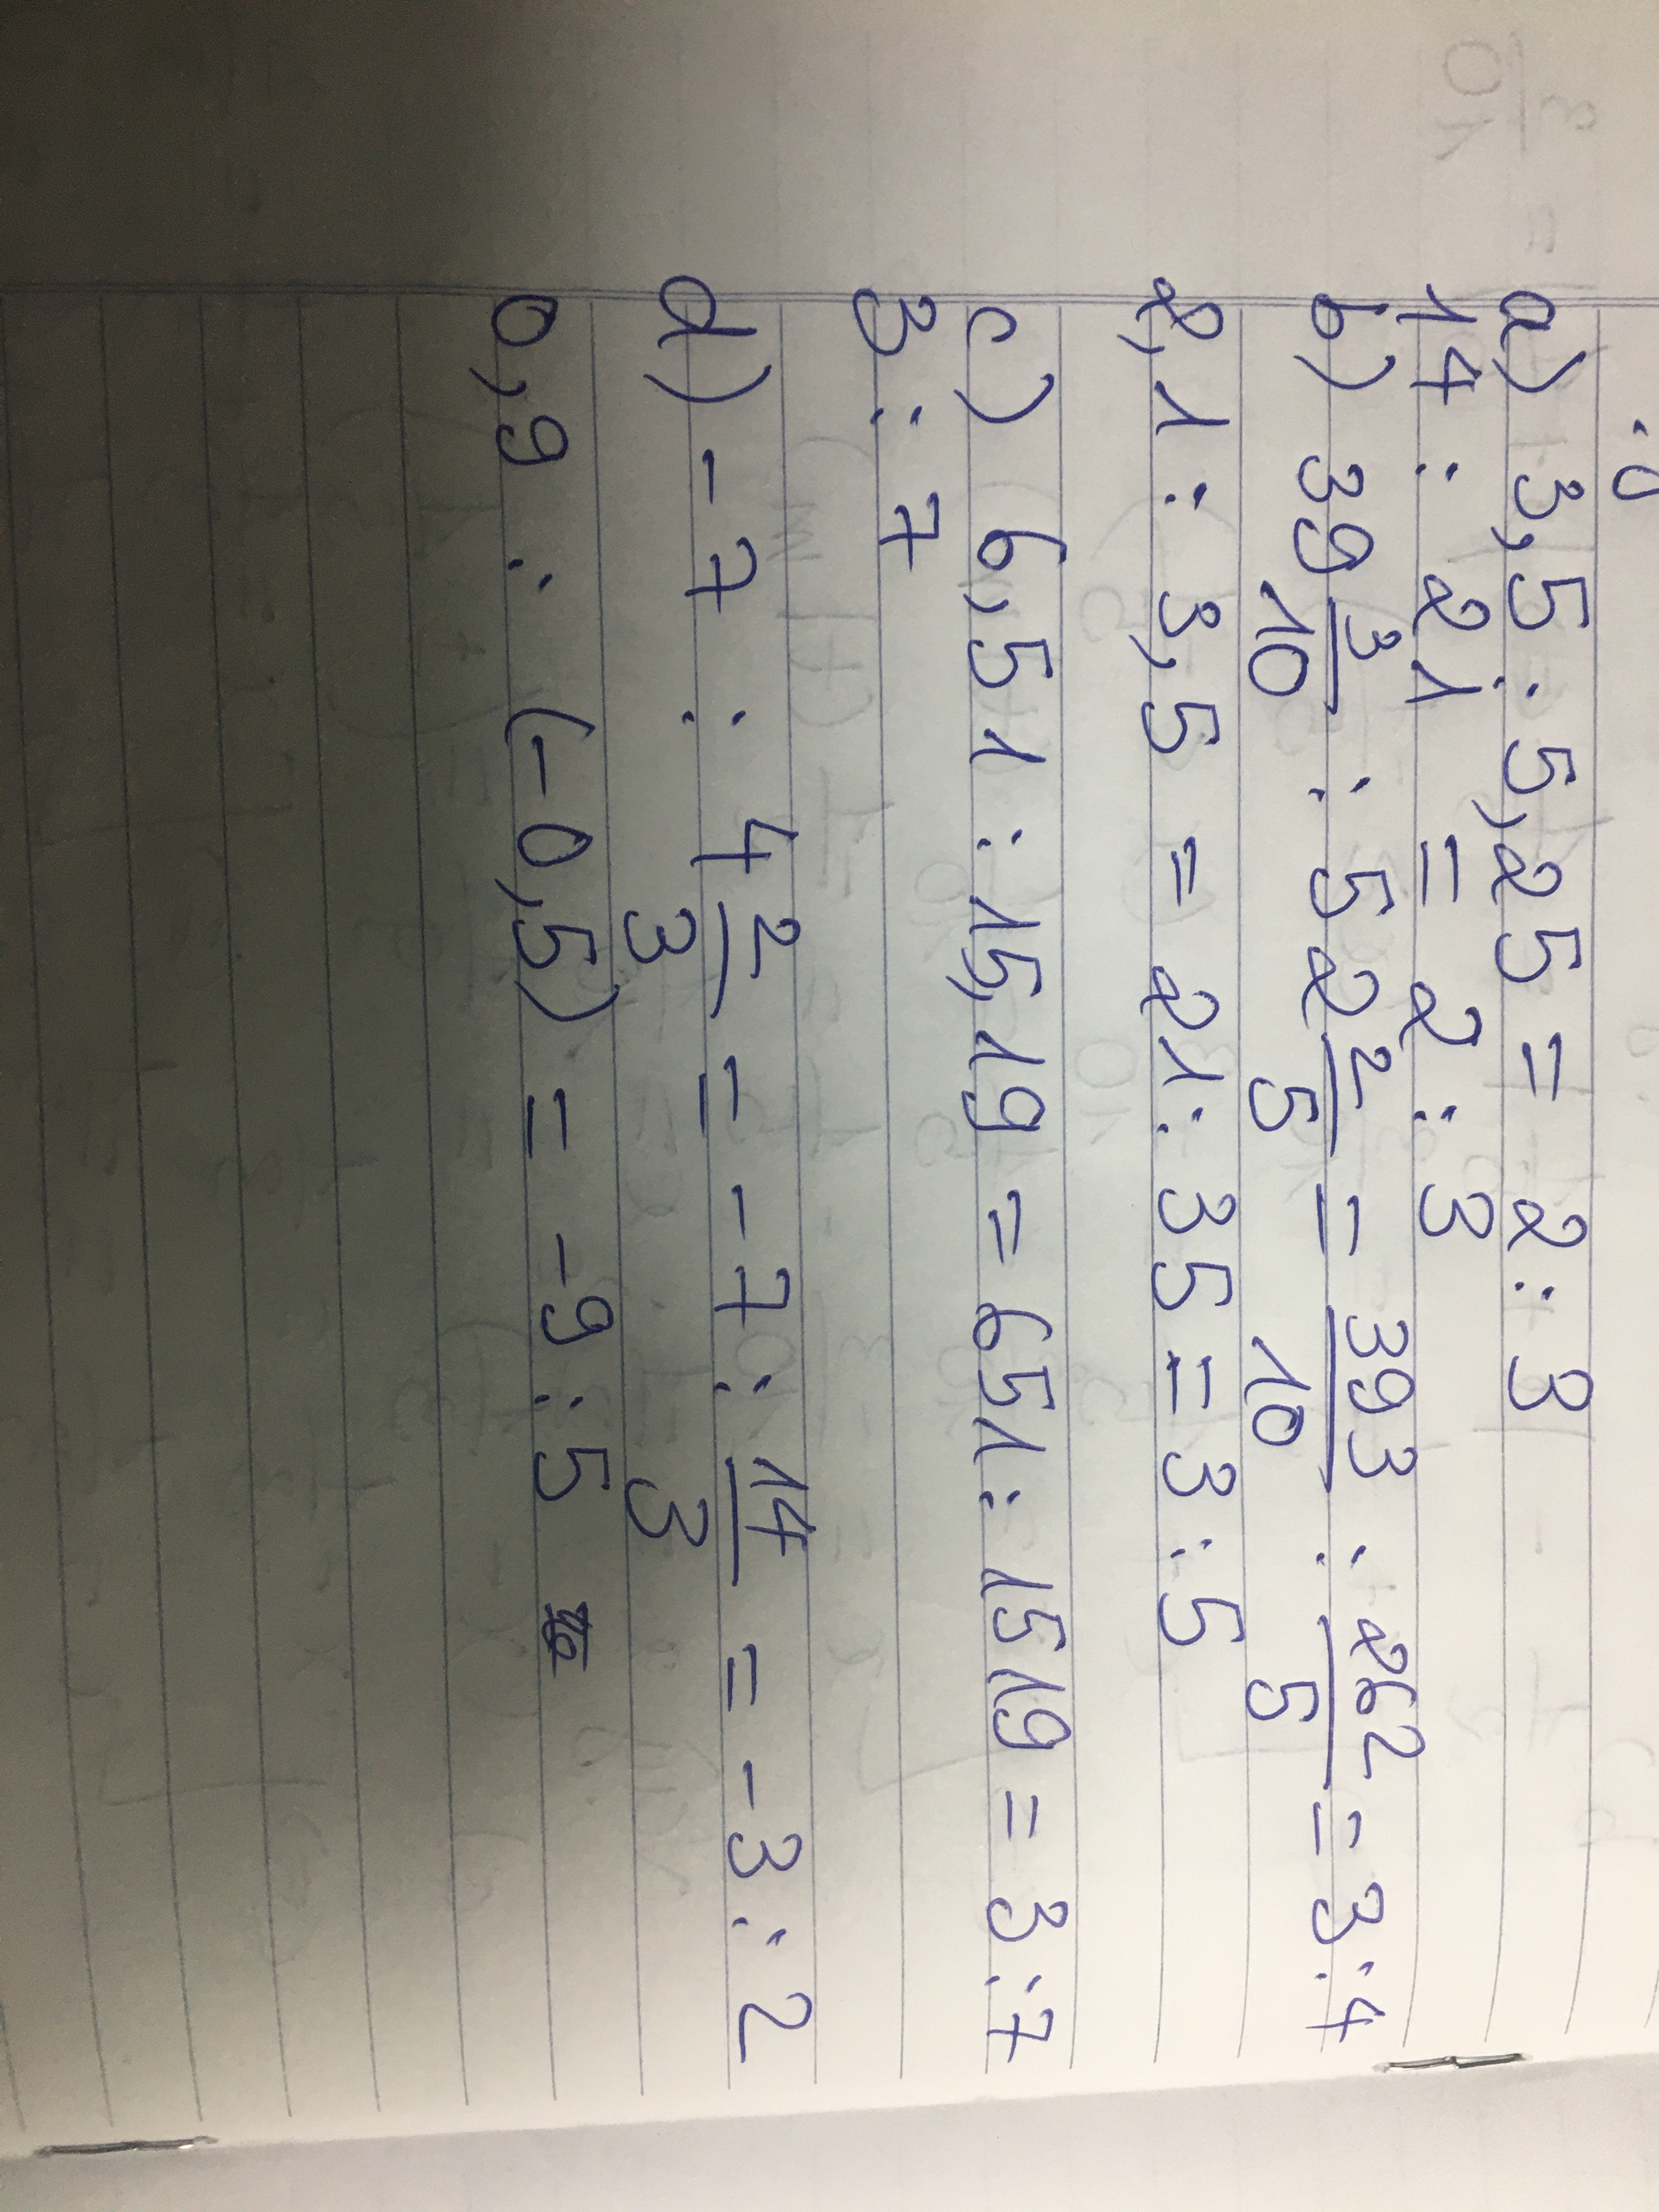 a) 3,5 : 5,25 = 2 : 3
14 : 21 = 2 : 3
b) 39 3/10 : 52 2/5 = 393/10 : 262/5 = 3 : 4
2,1 : 3,5 = 21 : 35 = 3 : 5
c) 6,51 : 15,19 = 651 : 1519 = 3 : 7
3 : 7
d) -7 : 4 2/3 = -7 : 14/3 = -3 : 2
0,9 : (-0,5) = -9 : 5